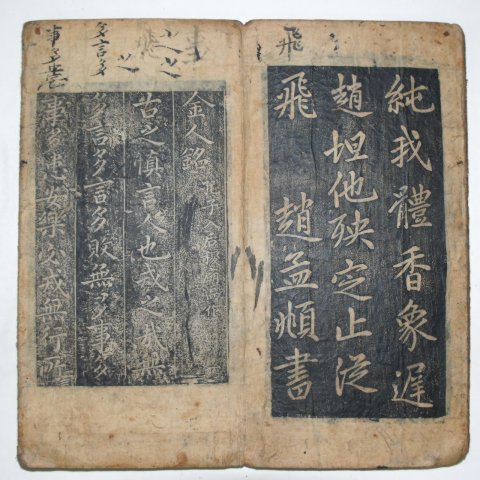 飛
純我體香象遲
趙坦他殃定止泛
飛　趙孟頫書
多言多
金人銘 孔子
古之慎言人也戒之哉無
多言多言多敗無多事多
事多患安樂必戒無行所